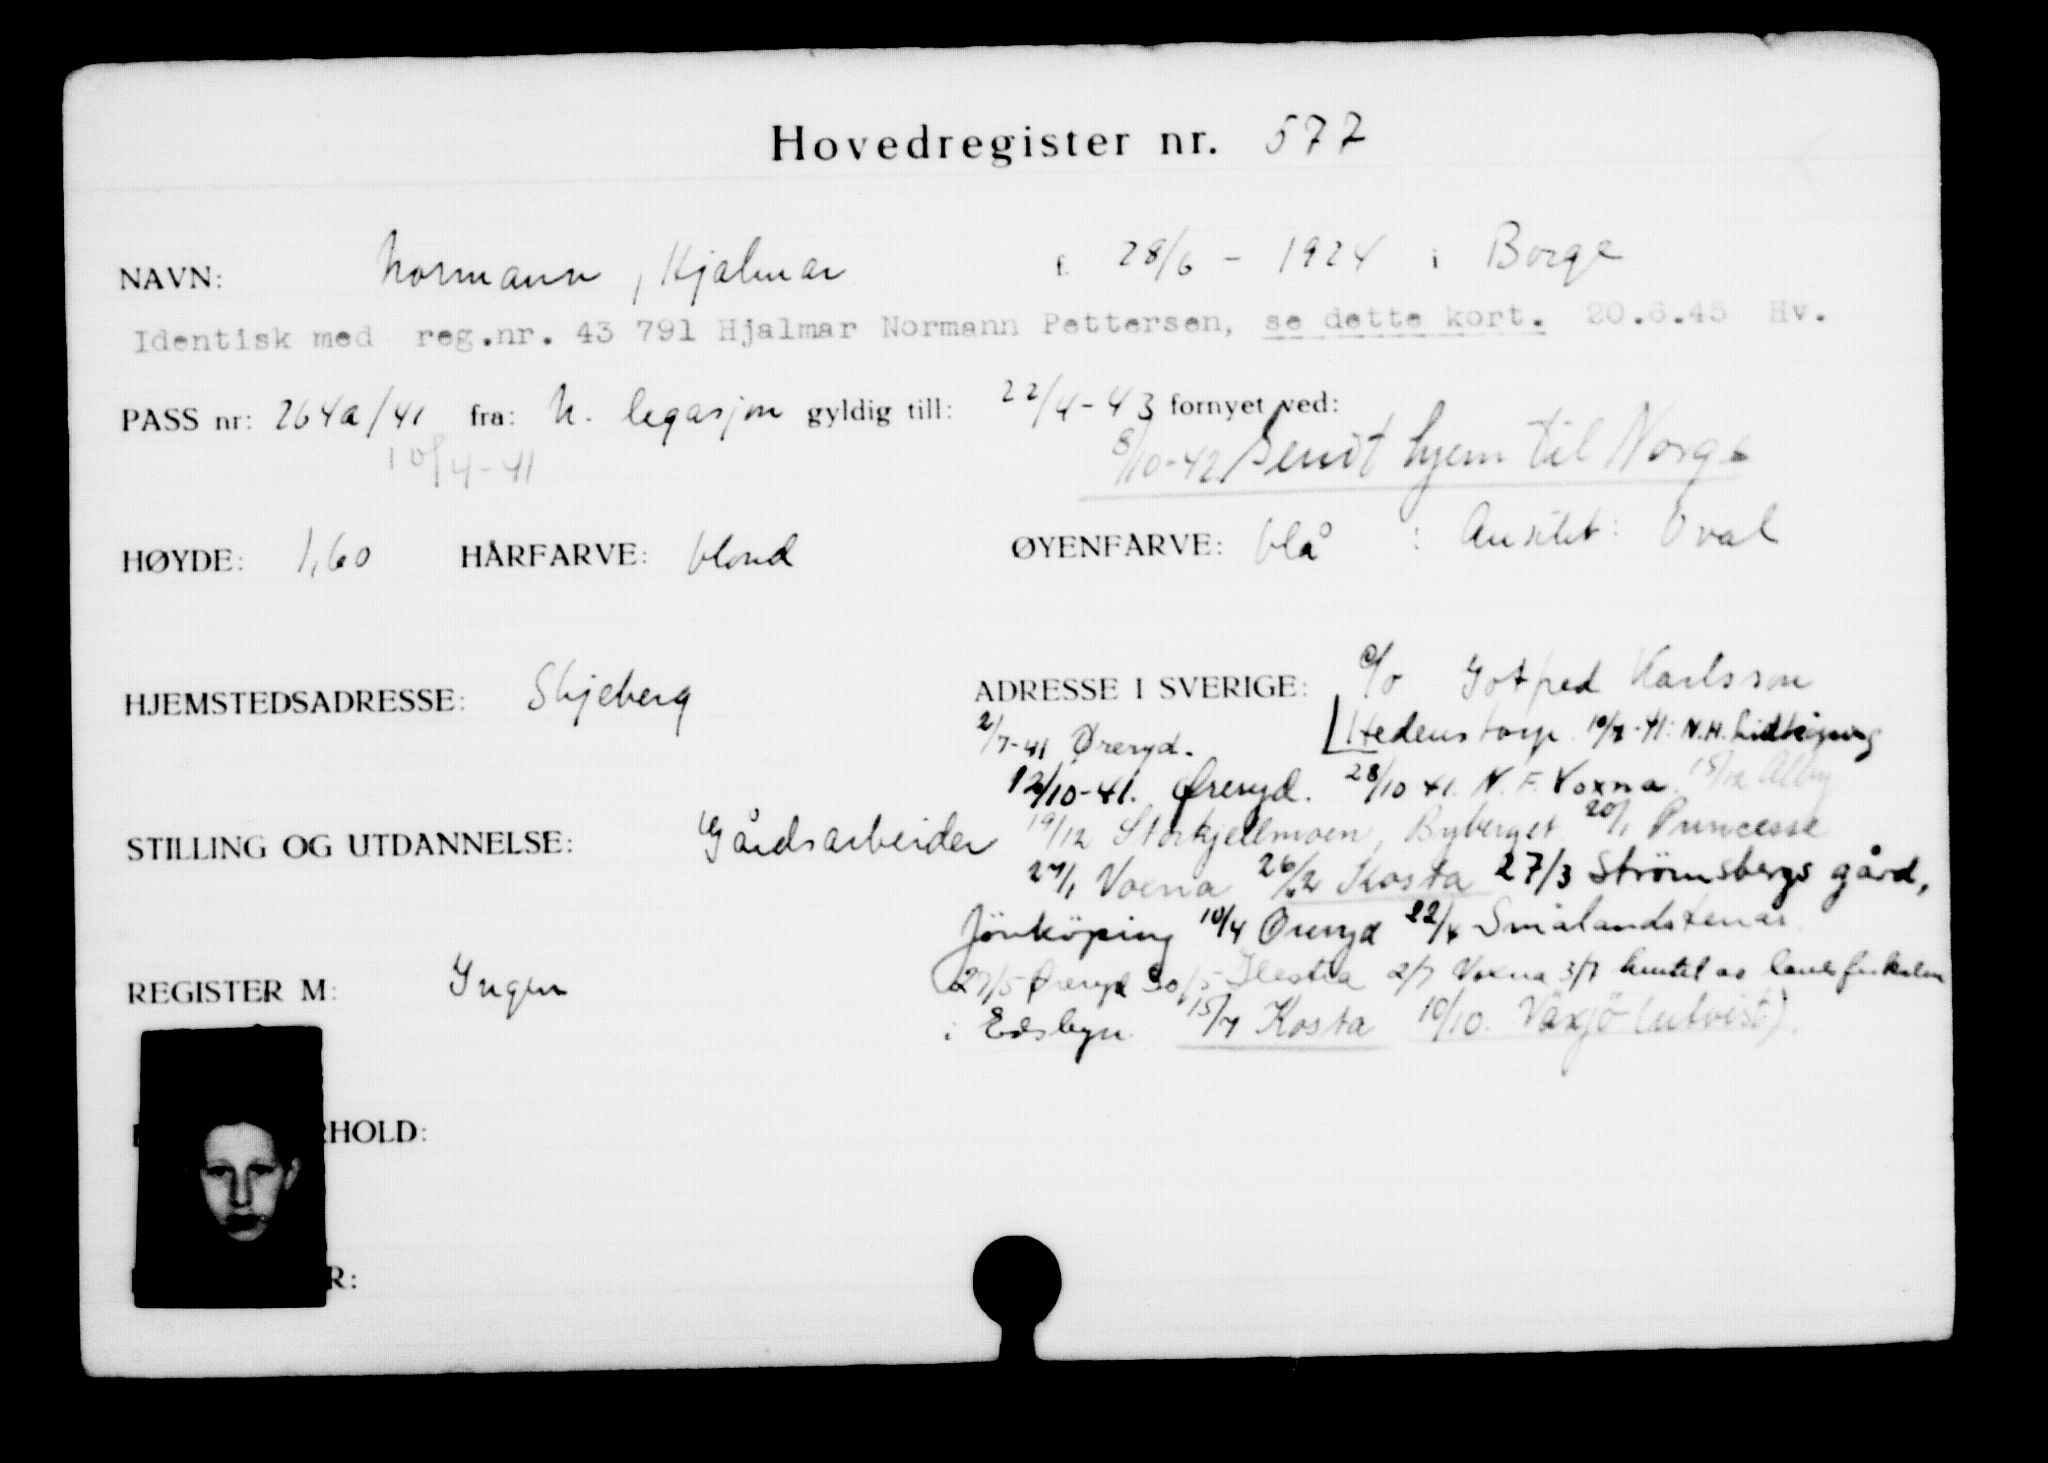 Hovedregister nr. 577
NAVN: Normann, Hjalmar f. 28/6 - 1924 i Borge
Identisk med reg.nr. 43 791 Hjalmar Normann Pettersen, se dette kort. 20.6.45 Hv.
PASS nr: 264a/41 fra: N. legasjon gyldig till: 22/4-43 fornyet ved:
10/4-41 8/10-42 Sendt hjem til Norge
HØYDE: 1,60 HÅRFARVE: blond ØYENFARVE: blå : Ansikt: Oval
HJEMSTEDSADRESSE: Skjeberg ADRESSE I SVERIGE: c/o Gotfred Karlsson
2/7-41 Øreryd. Hedenstorp. 10/7-41: N.H. Lidköping
12/10-41. Øreryd. 28/10 41. N.F. Voxna. 15/12 Alby
STILLING OG UTDANNELSE: Gårdsarbeider 19/12 Storkjellmoen, Byberget. 20/1 Princesse
27/1 Voxna 26/2 Kosta 27/3 Strømsbergs gård,
Jönköping 10/4 Øreryd 22/4 Smålandstenar.
REGISTER M: Ingen 27/5 Øreryd 30/5 2/7 Voxna 3/7 hentet av landsfiskalen
i Edsbyn. 15/7 Kosta 10/10. Växjö (utvist).
RHOLD:
R: